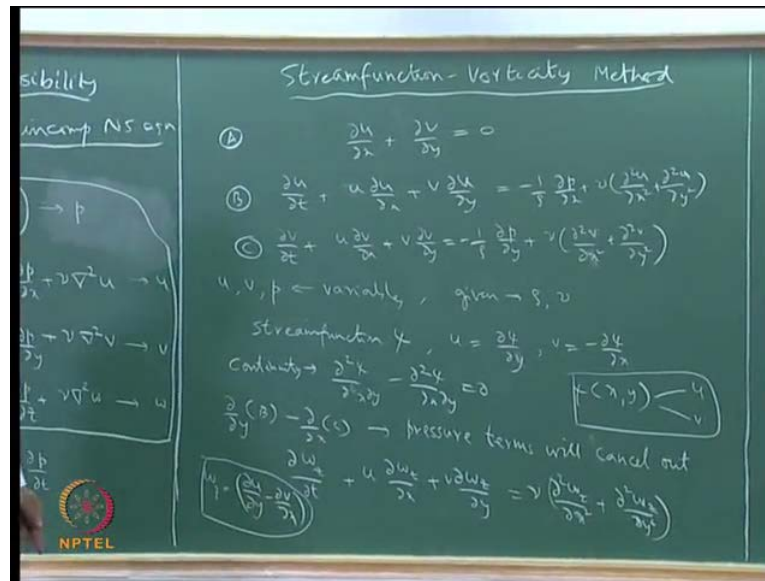 sibility
incomp NS eqn
→ p
∂p/∂x + ν∇²u → u
∂p/∂y + ν∇²v → v
∂p/∂t + ν∇²u → w
∂p/∂t
Streamfunction-Vorticity Method
Ⓐ ∂u/∂x + ∂v/∂y = 0
Ⓑ ∂u/∂t + u ∂u/∂x + v ∂u/∂y = -1/ρ ∂p/∂x + ν(∂²u/∂x² + ∂²u/∂y²)
Ⓒ ∂v/∂t + u ∂v/∂x + v ∂v/∂y = -1/ρ ∂p/∂y + ν(∂²v/∂x² + ∂²v/∂y²)
u, v, p ← variables, given → ρ, ν
streamfunction ψ, u = ∂ψ/∂y, v = -∂ψ/∂x
Continuity → ∂²ψ/∂x∂y - ∂²ψ/∂x∂y = 0
ψ(x, y) u v
∂/∂y (B) - ∂/∂x (C) → pressure terms will cancel out
∂ω_z/∂t + u ∂ω_z/∂x + v ∂ω_z/∂y = ν(∂²ω_z/∂x² + ∂²ω_z/∂y²)
ω_z = (∂u/∂y - ∂v/∂x)
NPTEL